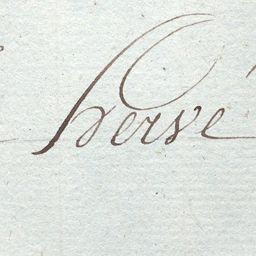 Hervé